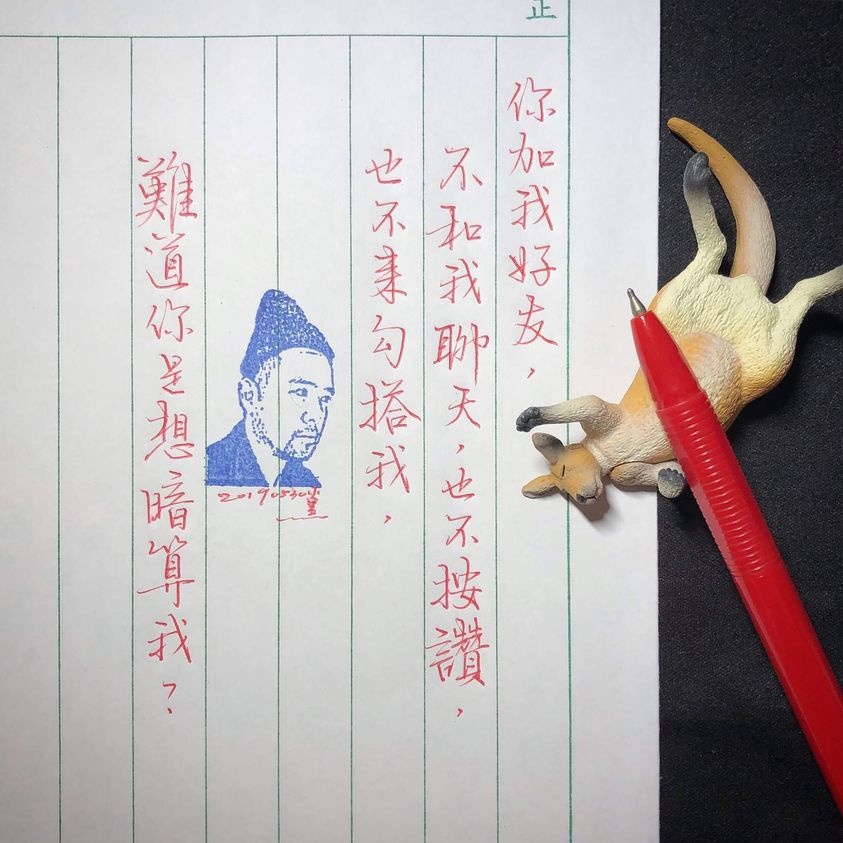 正
你加我好友，
不和我聊天，也不按讚，
也不来勾搭我，
20190530
難道你是想暗算我？